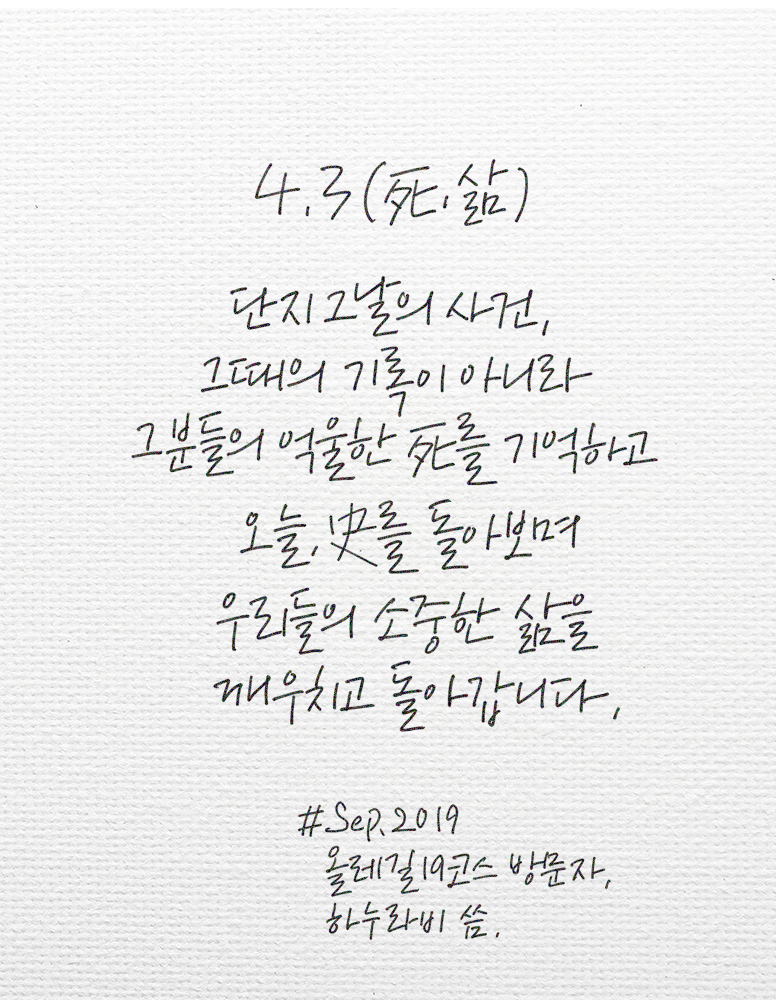 4.3(死.삶)
단지 그날의 사건,
그때의 기록이 아니라
그분들의 억울한 死를 기억하고
오늘, 史를 돌아보며
우리들의 소중한 삶을
깨우치고 돌아갑니다.
#Sep.2019
올레길19코스 방문자,
하누라비 씀.